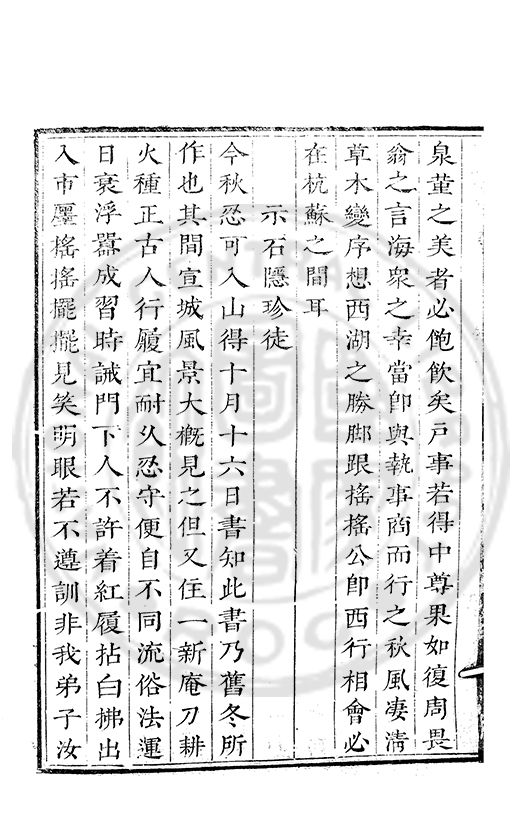 泉蓳之美者必飽飲矣戸事若得中尊果如復周畏
翁之言海衆之幸當卽與執事商而行之秋風凄淸
草木變序想西湖之勝脚跟搖搖公卽西行相會必
在杭蘇之間耳
示石隱珍徒
今秋恐可入山得十月十六日書知此書乃舊冬所
作也其間宣城風景大槪見之但又住一新庵刀耕
火種正古人行履宜耐久恐守便自不同流俗法運
日衰浮囂成習時誡門下人不許着紅履拈白拂出
入市廛搖搖擺擺見笑明眼若不遵訓非我弟子汝